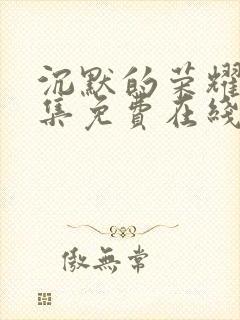 沉默的荣耀
集免费在线
傲無常